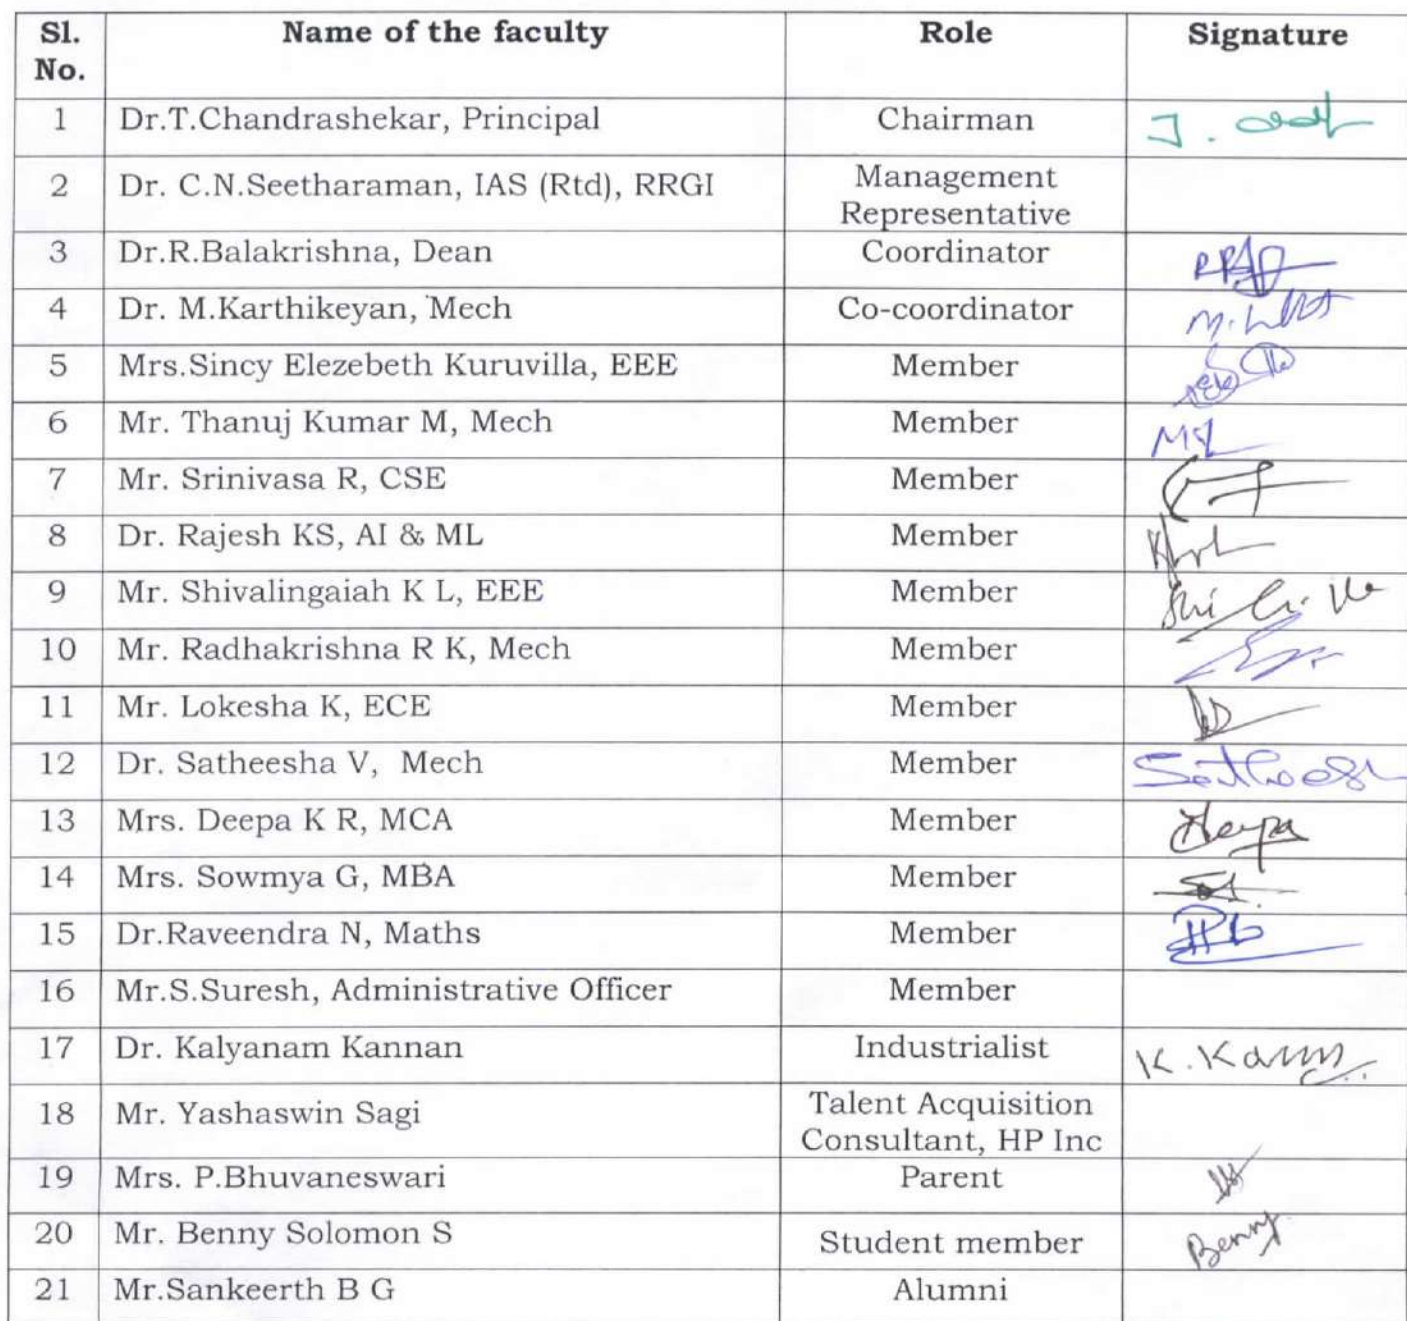 Sl. No. Name of the faculty Role Signature
1 Dr.T.Chandrashekar, Principal Chairman
2 Dr. C.N.Seetharaman, IAS (Rtd), RRGI Management Representative
3 Dr.R.Balakrishna, Dean Coordinator
4 Dr. M.Karthikeyan, Mech Co-coordinator
5 Mrs.Sincy Elezebeth Kuruvilla, EEE Member
6 Mr. Thanuj Kumar M, Mech Member
7 Mr. Srinivasa R, CSE Member
8 Dr. Rajesh KS, AI & ML Member
9 Mr. Shivalingaiah K L, EEE Member
10 Mr. Radhakrishna R K, Mech Member
11 Mr. Lokesha K, ECE Member
12 Dr. Satheesha V, Mech Member
13 Mrs. Deepa K R, MCA Member Deepa
14 Mrs. Sowmya G, MBA Member
15 Dr.Raveendra N, Maths Member
16 Mr.S.Suresh, Administrative Officer Member
17 Dr. Kalyanam Kannan Industrialist K.
18 Mr. Yashaswin Sagi Talent Acquisition Consultant, HP Inc
19 Mrs. P.Bhuvaneswari Parent
20 Mr. Benny Solomon S Student member Benny
21 Mr.Sankeerth B G Alumni